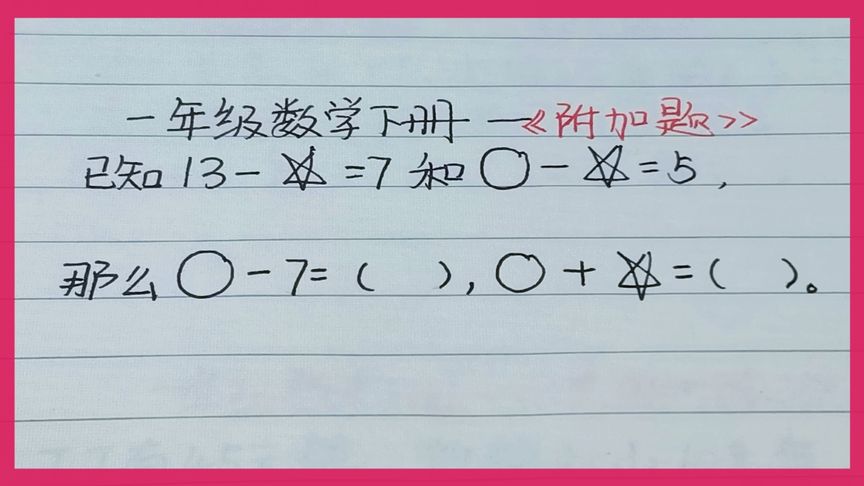 一年级数学下册一《附加题》
已知 13-☆=7 和 〇-☆=5，
那么 〇-7=(  )，〇+☆=(  )。